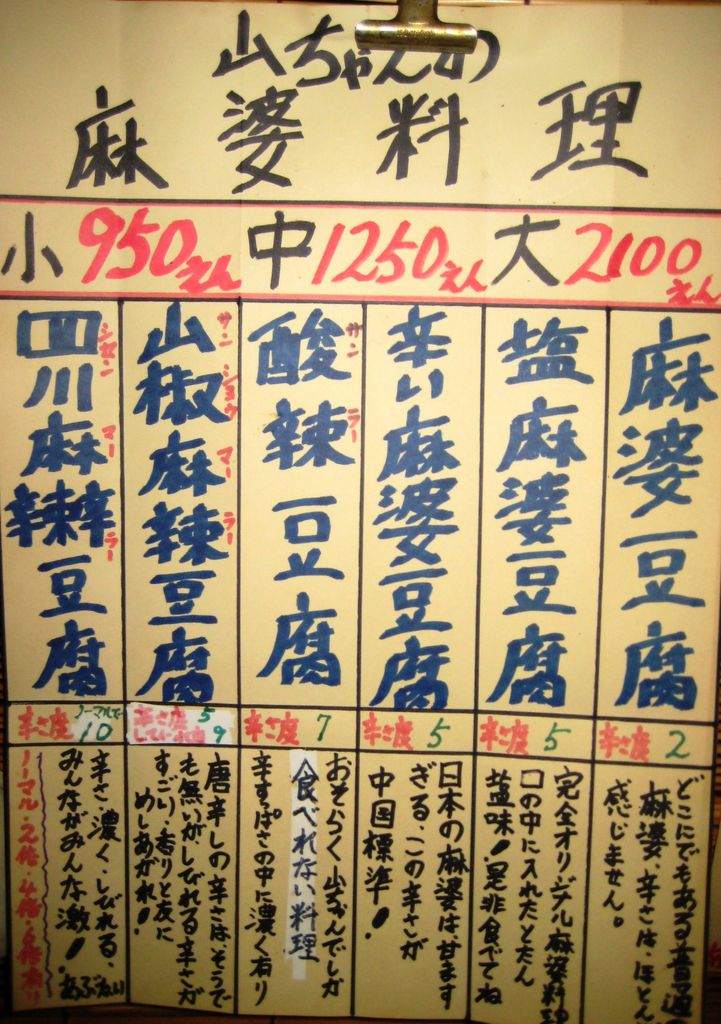 山ちゃんの
麻婆料理
小 950えん 中 1250えん 大 2100えん
麻婆豆腐
辛さ度 2
どこにでもある普通
麻婆、辛さは、ほとんど
感じません。
塩麻婆豆腐
辛さ度 5
完全オリジナル麻婆料理
口の中に入れたとたん
塩味!是非食べてね
辛い麻婆豆腐
辛さ度 5
日本の麻婆は甘ます
ぎる、この辛さが
中国標準!
酸辣豆腐
サンラー
辛さ度 7
おそらく山ちゃんでしか
食べれない料理
辛すっぱさの中に濃く有り
山椒麻辣豆腐
サンショウマーラー
辛さ度 5
しびれ度 9
唐辛しの辛さは、そうで
も無いが、しびれる辛さが
すごい、香りと友に
めしあがれ!
四川麻辣豆腐
シセンマーラー
辛さ度 ノーマルで 10
辛さ、濃く、しびれる、
みんながみんな激!あぶない
ノーマル・2倍・4倍・6倍有り